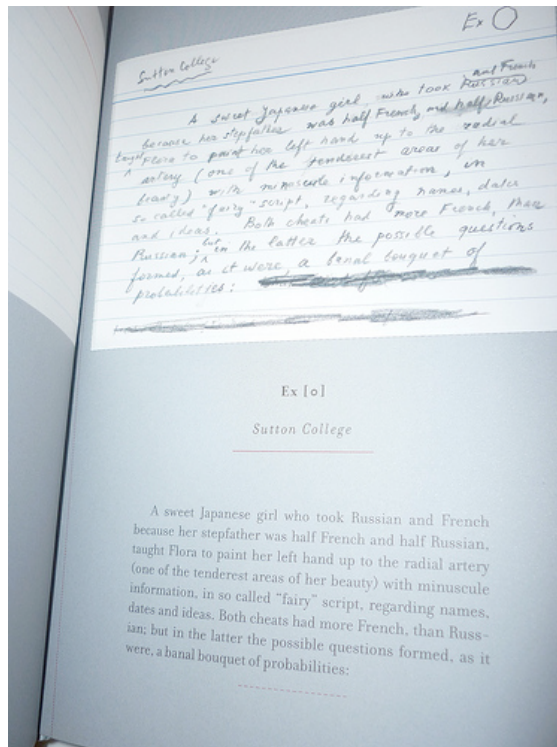 Ex O
Sutton College
A sweet Japanese girl, who took Russian and French
because her stepfather was half French, and half Russian,
taught Flora to paint her left hand up to the radial
artery (one of the tenderest areas of her
beauty) with minuscule information, in
so called "fairy" script, regarding names, dates
and ideas. Both cheats had more French, than
Russian; but in the latter the possible questions
formed, as it were, a banal bouquet of
probabilities:
Ex [o]
Sutton College
A sweet Japanese girl who took Russian and French
because her stepfather was half French and half Russian,
taught Flora to paint her left hand up to the radial artery
(one of the tenderest areas of her beauty) with minuscule
information, in so called "fairy" script, regarding names,
dates and ideas. Both cheats had more French, than Russ-
ian; but in the latter the possible questions formed, as it
were, a banal bouquet of probabilities: